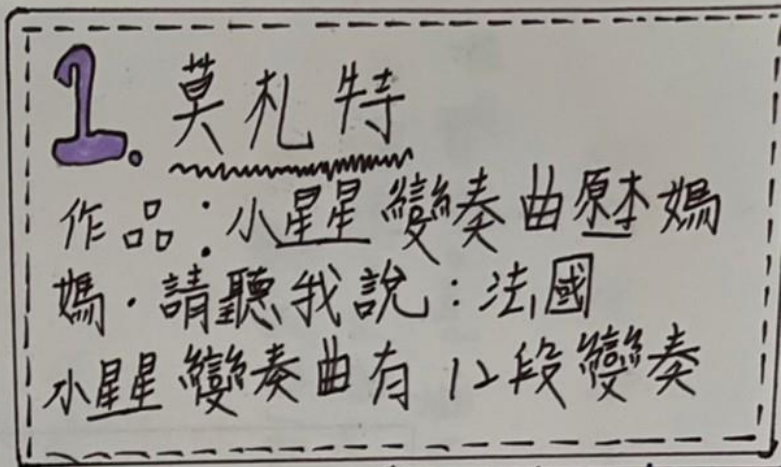 1. 莫札特
作品:小星星變奏曲原本媽
媽·請聽我說:法國
小星星變奏曲有12段變奏